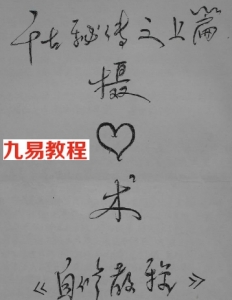 千古秘传之上篇
摄
♡
术
九易教程
《自修教程》